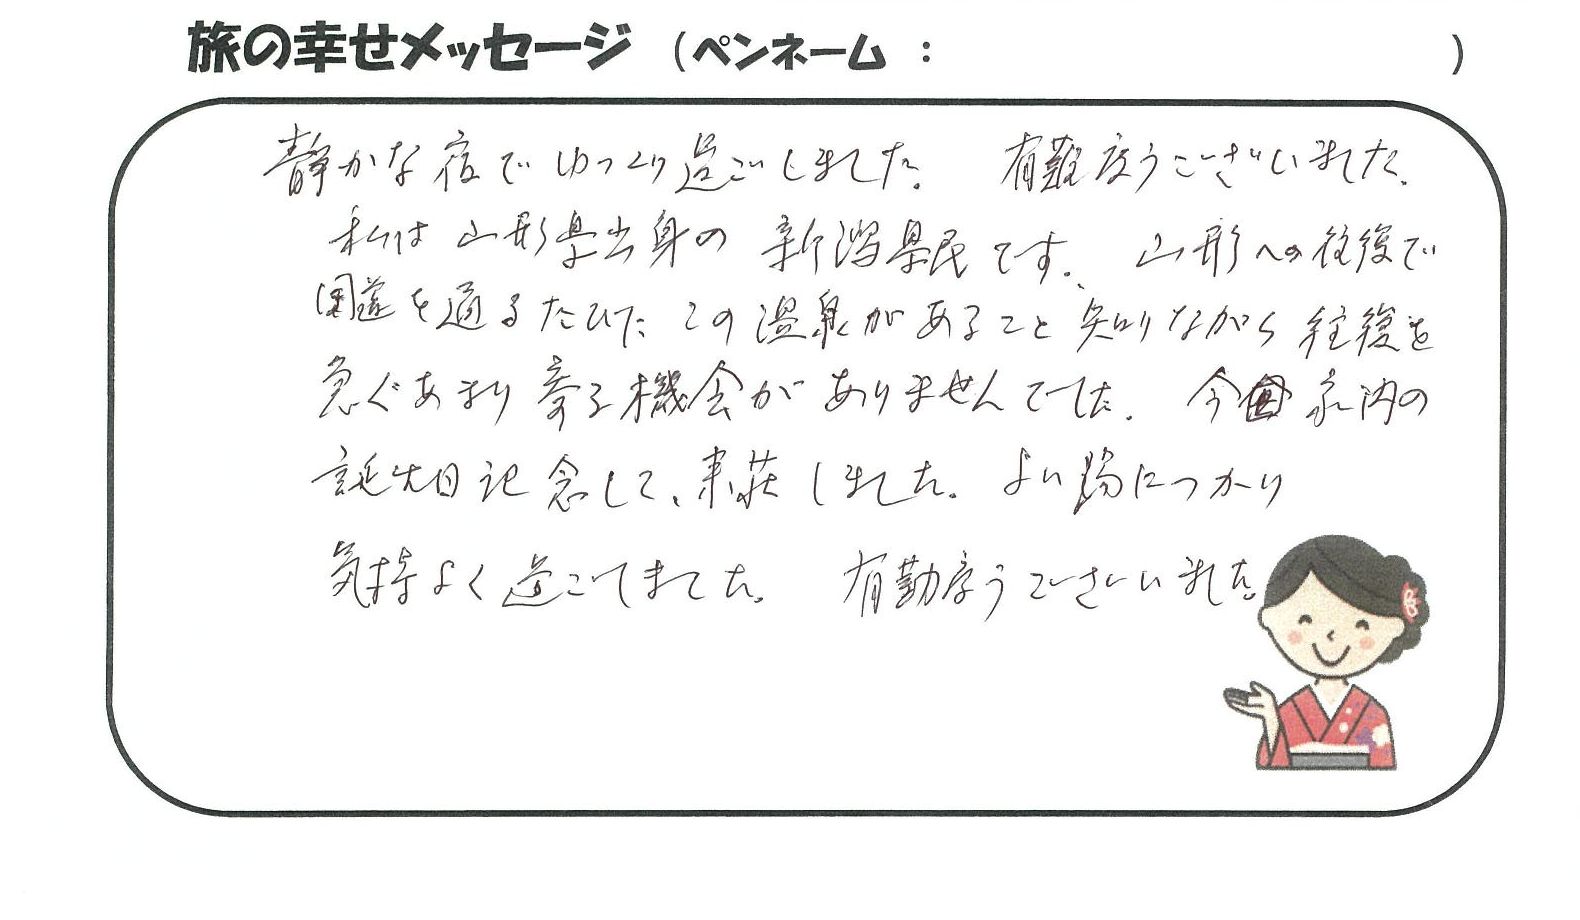 旅の幸せメッセージ （ペンネーム ： ）
静かな宿でゆっくり過ごしました。 有難度うございました。
私は山形県出身の新潟県民です。 山形への往復で
国道を通るたびにこの温泉があること知りながら往復を
急ぐあまり寄る機会がありませんでした。 今回家内の
誕生日記念して、来荘しました。 よい湯につかり
気持よく過ごしました。 有難度うございました。